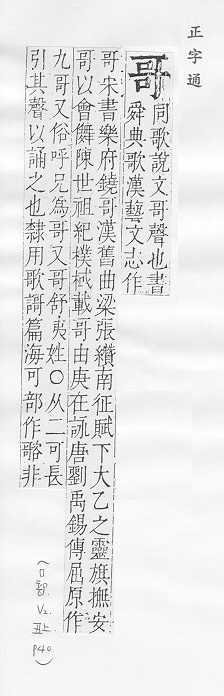 正字通
哥
同歌說文哥聲也書
舜典歌漢藝文志作
哥宋書樂府鐃哥漢舊曲梁張纘南征賦下大乙之靈旗撫安
哥以會儛陳世祖紀樸棫載哥由庚在詠唐劉禹錫傳屈原作
九哥又俗呼兄為哥又哥舒夷姓○从二可長
引其聲以誦之也隸用歌謌篇海可部作㗶非
V2.
P40